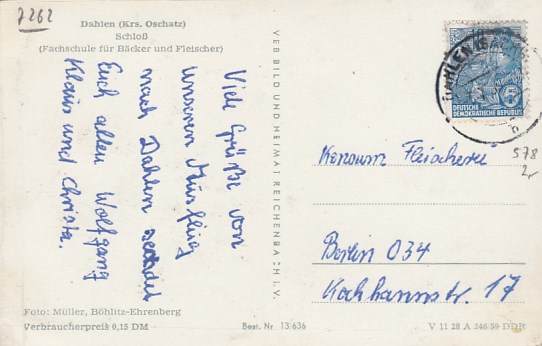 7262
Dahlen (Krs. Oschatz)
Schloß
(Fachschule für Bäcker und Fleischer)
Viele Grüße von
unserem Ausflug
nach Dahlen sendet
Euch allen Wolfgang
Klaus und Christa.
Foto: Müller, Böhlitz-Ehrenberg
Verbraucherpreis 0,15 DM
VEB BILD UND HEIMAT REICHENBACH I. V.
Best. Nr. 13/636
DAHLEN
DEUTSCHE
DEMOKRATISCHE REPUBLIK
Konsum Fleischerei
578
2,-
Berlin O34
Kochhannstr. 17
V 11 28 A 246/59 DDR